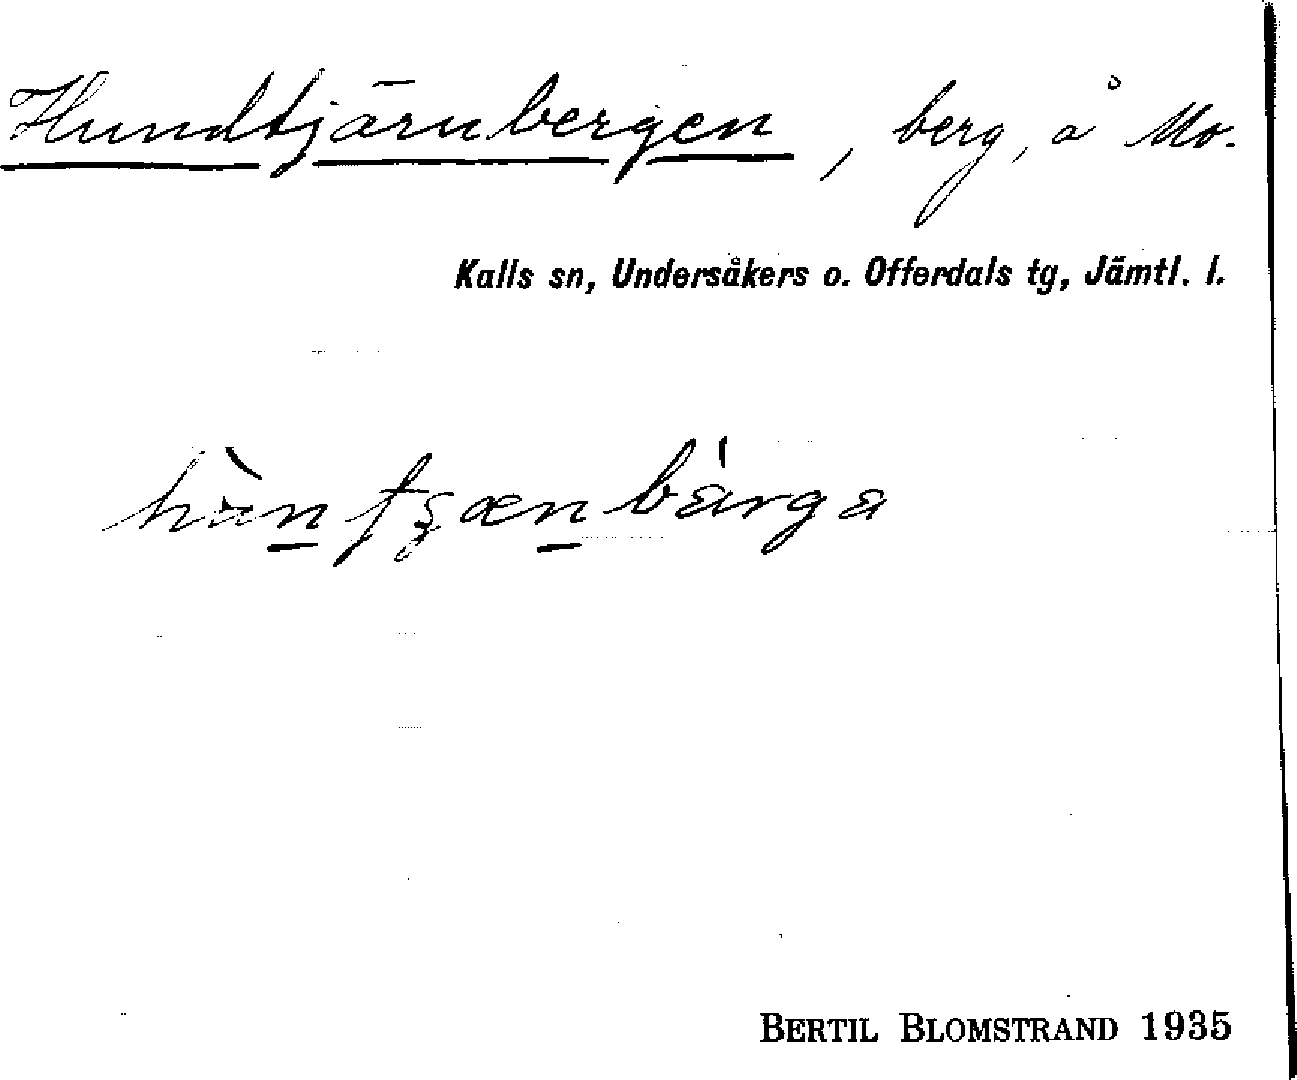 Hundtjärnbergen, berg, å Mo.
Kalls sn, Undersåkers o. Offerdals tg, Jämtl. l.
BERTIL BLOMSTRAND 1935